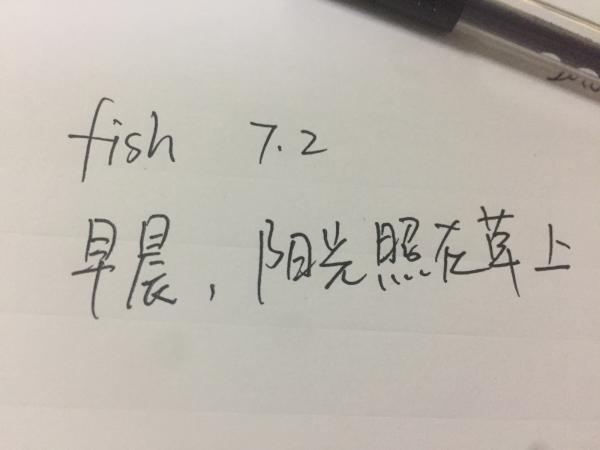 fish 7.2
早晨，阳光照在草上